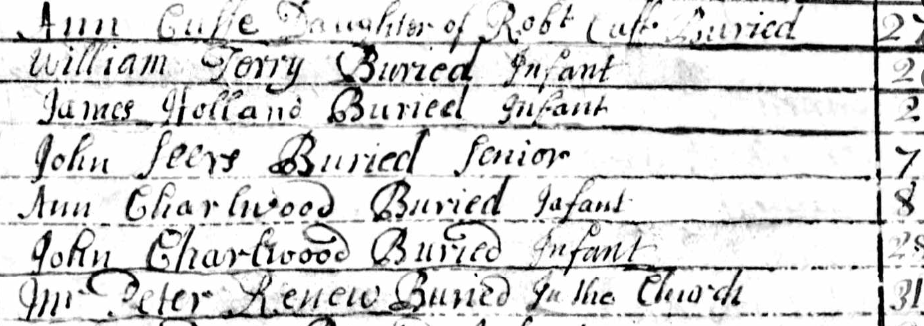 Ann Cuffe Daughter of Robt Cuffe Buried 27
William Terry Buried Infant 2
James Holland Buried Infant 2
John Seers Buried Senior 7
Ann Charlwood Buried Infant 8
John Charlwood Buried Infant 28
Mr Peter Renew Buried In the Church 31